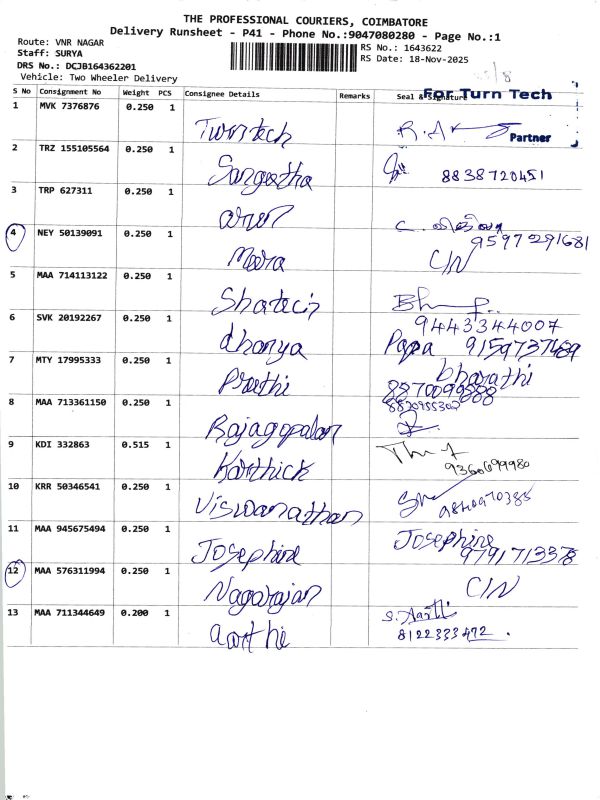 THE PROFESSIONAL COURIERS, COIMBATORE
Delivery Runsheet - P41 - Phone No.:9047080280 - Page No.:1
Route: VNR NAGAR
Staff: SURYA
DRS No.: DCJB164362201
Vehicle: Two Wheeler Delivery
RS No.: 1643622
RS Date: 18-Nov-2025
S No Consignment No Weight PCS Consignee Details Remarks Seal & Signature
For Turn Tech
Partner
1 MVK 7376876 0.250 1
Turntech
2 TRZ 155105564 0.250 1
Sangeetha 8838720451
3 TRP 627311 0.250 1
arun
4 NEY 50139091 0.250 1 9597291681
Meera C/N
5 MAA 714113122 0.250 1
6 SVK 20192267 0.250 1 9443344007
dhanya Papa 9159737489
7 MTY 17995333 0.250 1 bharathi
Preethi
8 MAA 713361150 0.250 1
Rajagopalan
9 KDI 332863 0.515 1
Karthick
10 KRR 50346541 0.250 1
Viswanathan
11 MAA 945675494 0.250 1 Josephine
Josephine 9791713378
12 MAA 576311994 0.250 1 C/N
Nagarajan
13 MAA 711344649 0.200 1 S. Aarthi
aarthi 8122333472.